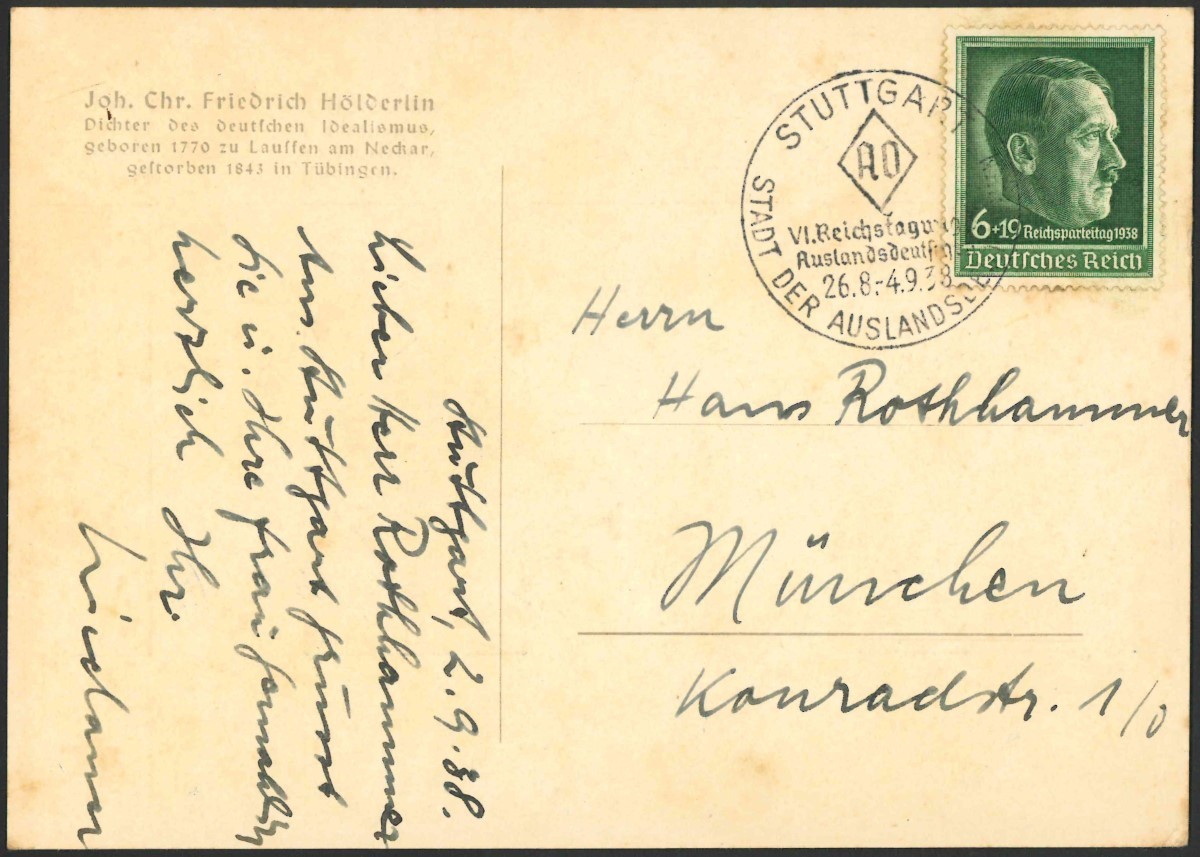 Joh. Chr. Friedrich Hölderlin
Dichter des deutschen Idealismus,
geboren 1770 zu Lauffen am Neckar,
gestorben 1843 in Tübingen.
Stuttgart, 2.9.38.
Lieber Herr Rothhammer
Aus Stuttgart grüsst
Sie u. Ihre Frau Gemahlin
herzlich Ihr
STUTTGART
AO
VI. Reichstagung
Auslandsdeutsch
26.8.-4.9.38
STADT DER AUSLANDSDE
6+19 Reichsparteitag 1938
Deutsches Reich
Herrn
Hans Rothhammer
München
Konradstr. 1/0